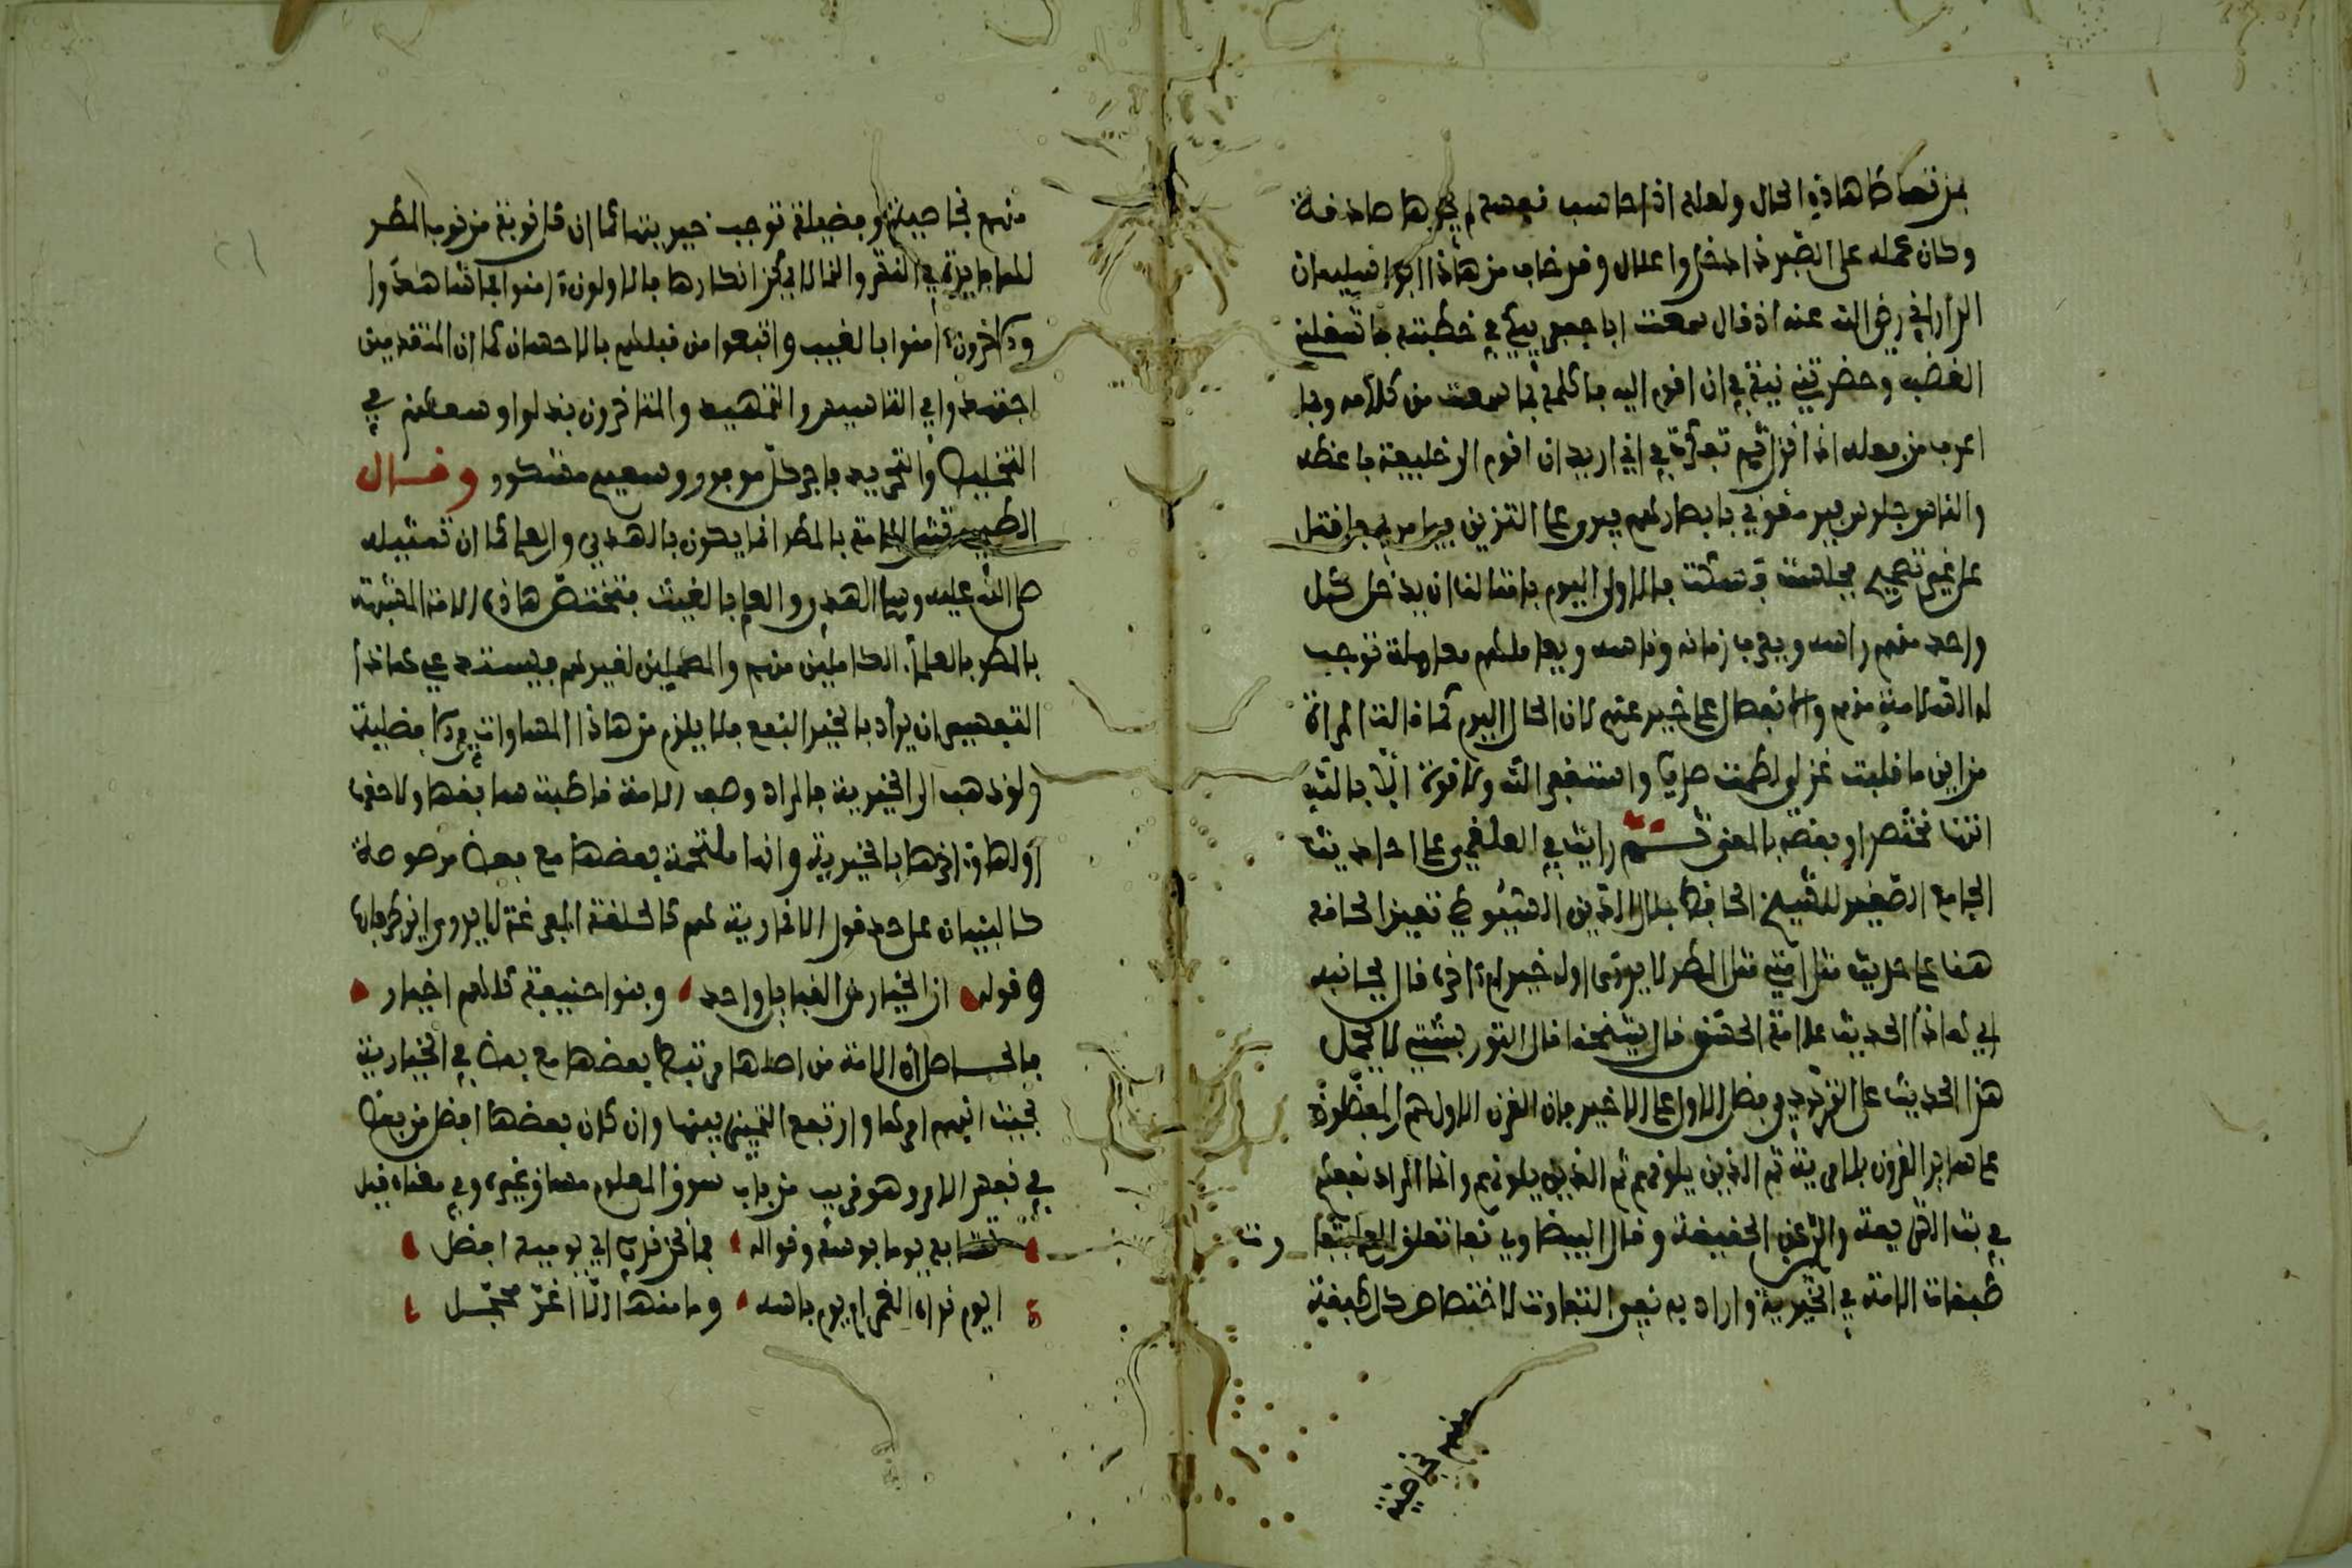 بمن تعاطا هاذه الحال ولعله اذا حاسب نفسه لم يجدها صادفة
وكان عمله على الضبر فاذا
الداراني رضي الله عنه اذ قال سمعت ابا جعفر يبكي في خطبته فاشغلني
الغضب وحضرتني نية في ان اقوم اليه فاكلمه بما سمعت من كلامه وبما
اعرف من فعله اذا نزل ثم تفكرت في اني اريد ان اقوم الى خليفة فاعظه
والناس جلوس يرمقوني بابصارهم فيعرض علي التزين فيامر بي فاقتل
على غير تصحيح فجلست وسكت فالاولى اليوم بامثالنا ان يدخل كل
واحد منهم راسه ويعرف زمانه وناسه ويعاملهم معاملة توجب
له السلامة منهم والانفصال على خير عنهم لان الحال اليوم كما قالت المراة
من اين ما قلبت غزلي واستغفر الله ولا قوة الا بالله
انتها مختصرا وبعضه بالمعنى ثم رايت في العلقمي على احاديث
الجامع الصغير للشيخ الحافظ جلال الدين السيوطي
هنا على حديث مثل امتي مثل المطر لا يدرى اوله خير ام اخره قال بجانبه
اي هاذا الحديث علامة الحسن قال شيخنا قال التوربشتي لا يحمل
هذا الحديث على التردد في فضل الاول على الاخير فان القرن الاول هم المفضلون
على ساير القرون بلا مرية ثم الذين يلونهم ثم الذين يلونهم وانما المراد نفعهم
في بث الشريعة والذب عن الحقيقة وقال البيضاوي نفا تعلق العلم بتفاوت
طبقات الامة في الخيرية واراد به نفي التفاوت لاختصاص كل طبقة
منهم بخاصية
منهم بخاصية وفضيلة توجب خيريتها كما ان كل نوبة من نوب المطر
لها فايدة في النشو والنما لا يمكن انكارها فالاولون امنوا بما شاهدوا
والاخرون امنوا بالغيب واتبعوا من قبلهم بالاحسان كما ان المتقدمين
اجتهدوا في التاسيس والتمهيد والمتاخرون بذلوا وسعهم في
التلخيص والتجريد فاجر كل موفور وسعيهم مشكور وقال
الطيبي تمثيل الامة بالمطر انما يكون بالهدى والعلم كما ان تمثيله
صلى الله عليه وسلم الهدى والعلم بالغيث فتختص هاذه الامة المشبهة
بالمطر بالعلماء الكاملين منهم والمكملين لغيرهم فيستدعي هاذا
التفسير ان يراد بالخير النفع فلا يلزم من هاذا المساوات في الافضلية
ولو ذهب الى الخيرية فالمراد وصف الامة قاطبة سابقها ولاحقها
اولها واخرها بالخيرية وانها ملتحمة بعضها مع بعض مرصوصة
كالبنيان على حد قول الانمارية هم كالحلقة المفرغة لا يدرى اين طرفاها
وقوله ان الخيار من القبايل واحد وبنوا حنيفة كلهم اخيار
فالحاصل ان الامة من اصلها مرتبط بعضها مع بعض في الخيارية
بحيث انبهم امرها وارتفع التمييز بينها وان كان بعضها افضل من بعض
في نفس الامر وهو قريب من باب سوق المعلوم مساق غيره وفي معناه قيل
تشابه يوما بوسه ونواله فما نحن ندري اي يوميه افضل
ايوم نداه الغمر ام يوم باسه وما منهما الا اغر محجل